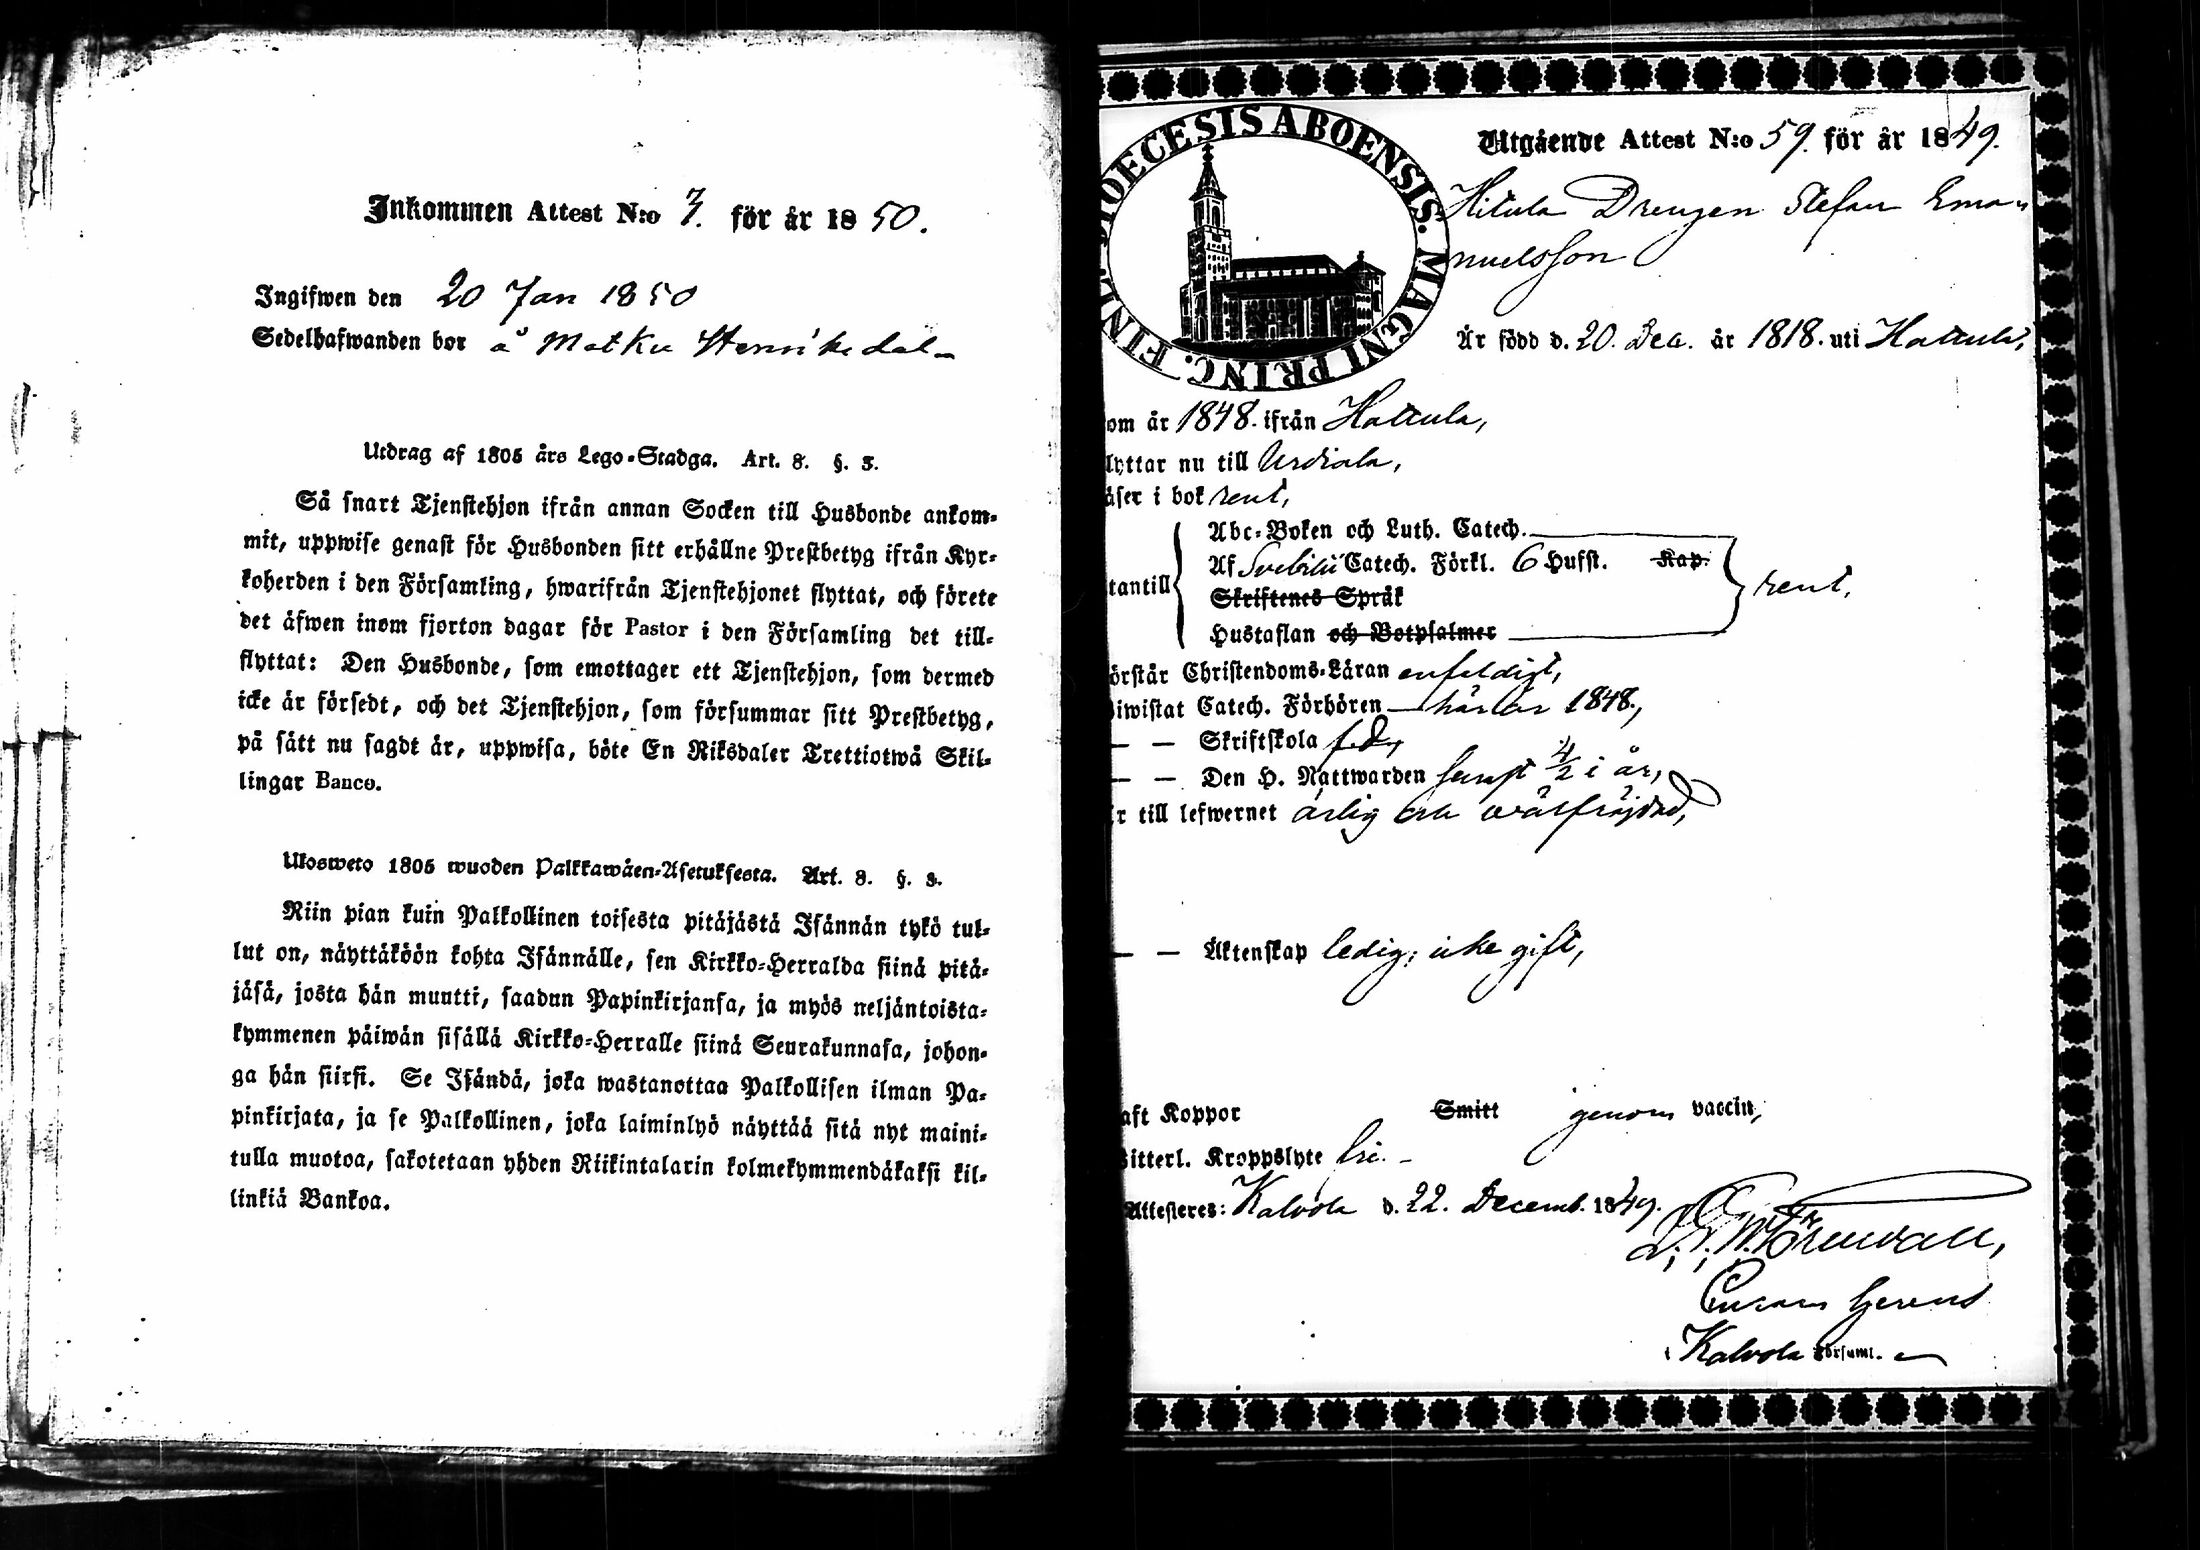 Inkommen Attest N:o 3. för år 1850.
Ingifwen den 20 Jan 1850
Sedelhafwanden bor å Matku Henrikedal
Utdrag af 1805 års Lego-Stadga. Art. 8. §. 3.
Så snart Tjenstehjon ifrån annan Socken till Husbonde ankom-
mit, uppwise genast för Husbonden sitt erhållne Prestbetyg ifrån Kyr-
koherden i den Församling, hwarifrån Tjenstehjonet flyttat, och förete
det äfwen inom fjorton dagar för Pastor i den Församling det till-
flyttat: Den Husbonde, som emottager ett Tjenstehjon, som dermed
icke är försedt, och det Tjenstehjon, som försummar sitt Prestbetyg,
på sätt nu sagdt är, uppwisa, böte En Riksdaler Trettiotwå Skil-
lingar Banco.
Ulosweto 1805 wuoden Palkkawäen-Asetuksesta. Art. 8. §. 3.
Niin pian kuin Palkollinen toisesta pitäjästä Isännän tykö tul-
lut on, näyttäköön kohta Isännälle, sen Kirkko-Herralda siinä pitä-
jäsä, josta hän muutti, saadun Papinkirjansa, ja myös neljäntoista-
kymmenen päiwän sisällä Kirkko-Herralle siinä Seurakunnasa, johon-
ga hän siirsi. Se Isändä, joka wastanottaa Palkollisen ilman Pa-
pinkirjata, ja se Palkollinen, joka laiminlyö näyttää sitä nyt maini-
tulla muotoa, sakotetaan yhden Riikintalarin kolmekymmendäkaksi kil-
linkiä Bankoa.
DIOECESIS ABOENSIS. MAGNI PRINC. FINL.
Utgående Attest N:o 59. för år 1849.
Hitula Drengen Stefan Ema-
nuelsson
Är född d. 20. Dec. år 1818. uti Hattula,
om år 1848. ifrån Hattula,
lyttar nu till Urdiala,
äser i bok rent,
Abc-Boken och Luth. Catech.
Af Svebilii Catech. Förkl. 6 Hufst. Kap.
tantill rent,
Skriftenes Språk
Hustaflan och Botpsalmer
örstår Christendoms-Läran enfeldigt,
iwistat Catech. Förhören här år 1848.,
— — Skriftskola
— — Den H. Nattwarden senast 4/2 i år,
r till lefwernet ärlig och wälfräjdad,
— — Äktenskap ledig; icke gift,
aft Koppor Smitt genom vaccin,
itterl. Kroppslyte fri. -
Attesteres: Kalvola d. 22. Decemb. 1849.
i Kalvola Församl.